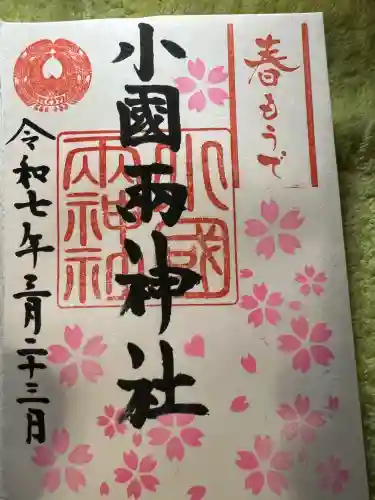 春もうで
小國兩神社
小國
兩神社
令和七年三月二十三日